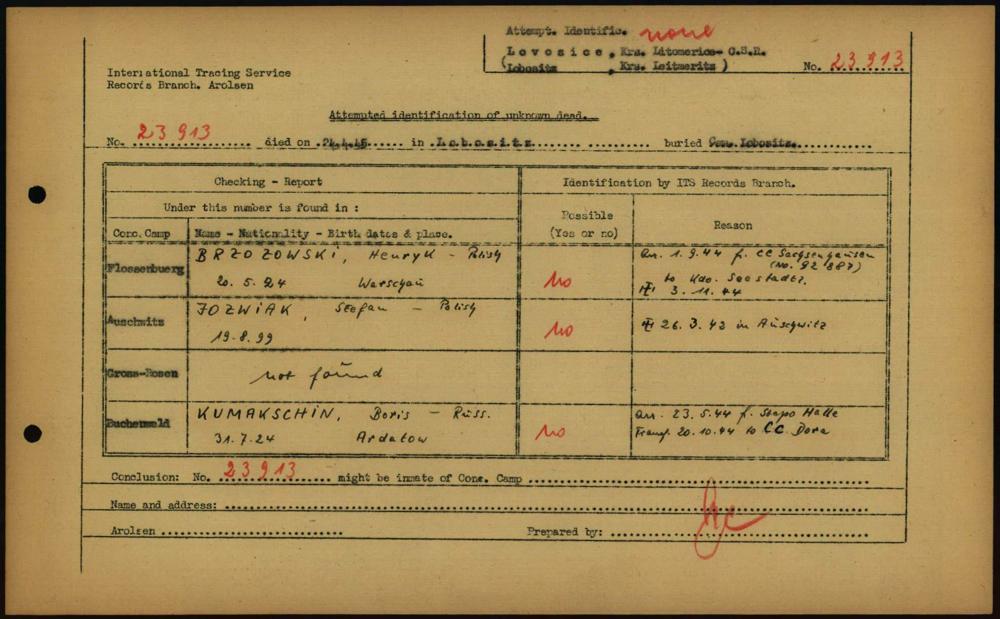 Attempt. Identific. none
Lovosice, Krs. Litomerice- C.S.R.
(Lobositz , Krs. Leitmeritz ) No. 23 913
International Tracing Service
Records Branch. Arolsen
Attempted identification of unknown dead.
No. 23 913 died on 24.4.45 in Lobositz buried Cem. Lobositz
Checking - Report Identification by ITS Records Branch.
Under this number is found in : Possible (Yes or no) Reason
Conc. Camp Name - Nationality - Birth dates & place.
Flossenbuerg BRZOZOWSKI, Henryk - Polish no arr. 1.9.44 f. CC Sachsenhausen
(No. 92'887)
20.5.24 Warschau to Kdo. Seestadtl.
3.11.44
Auschwitz JOZWIAK, Stefan - Polish no 26.3.42 in Auschwitz
19.8.99
Gross-Rosen not found
Buchenwald KUMAKSCHIN, Boris - Russ. no arr. 23.5.44 f. Stapo Halle
31.7.24 Ardatow Transf. 20.10.44 to CC Dora
Conclusion: No. 23 913 might be inmate of Conc. Camp
Name and address:
Arolsen Prepared by: